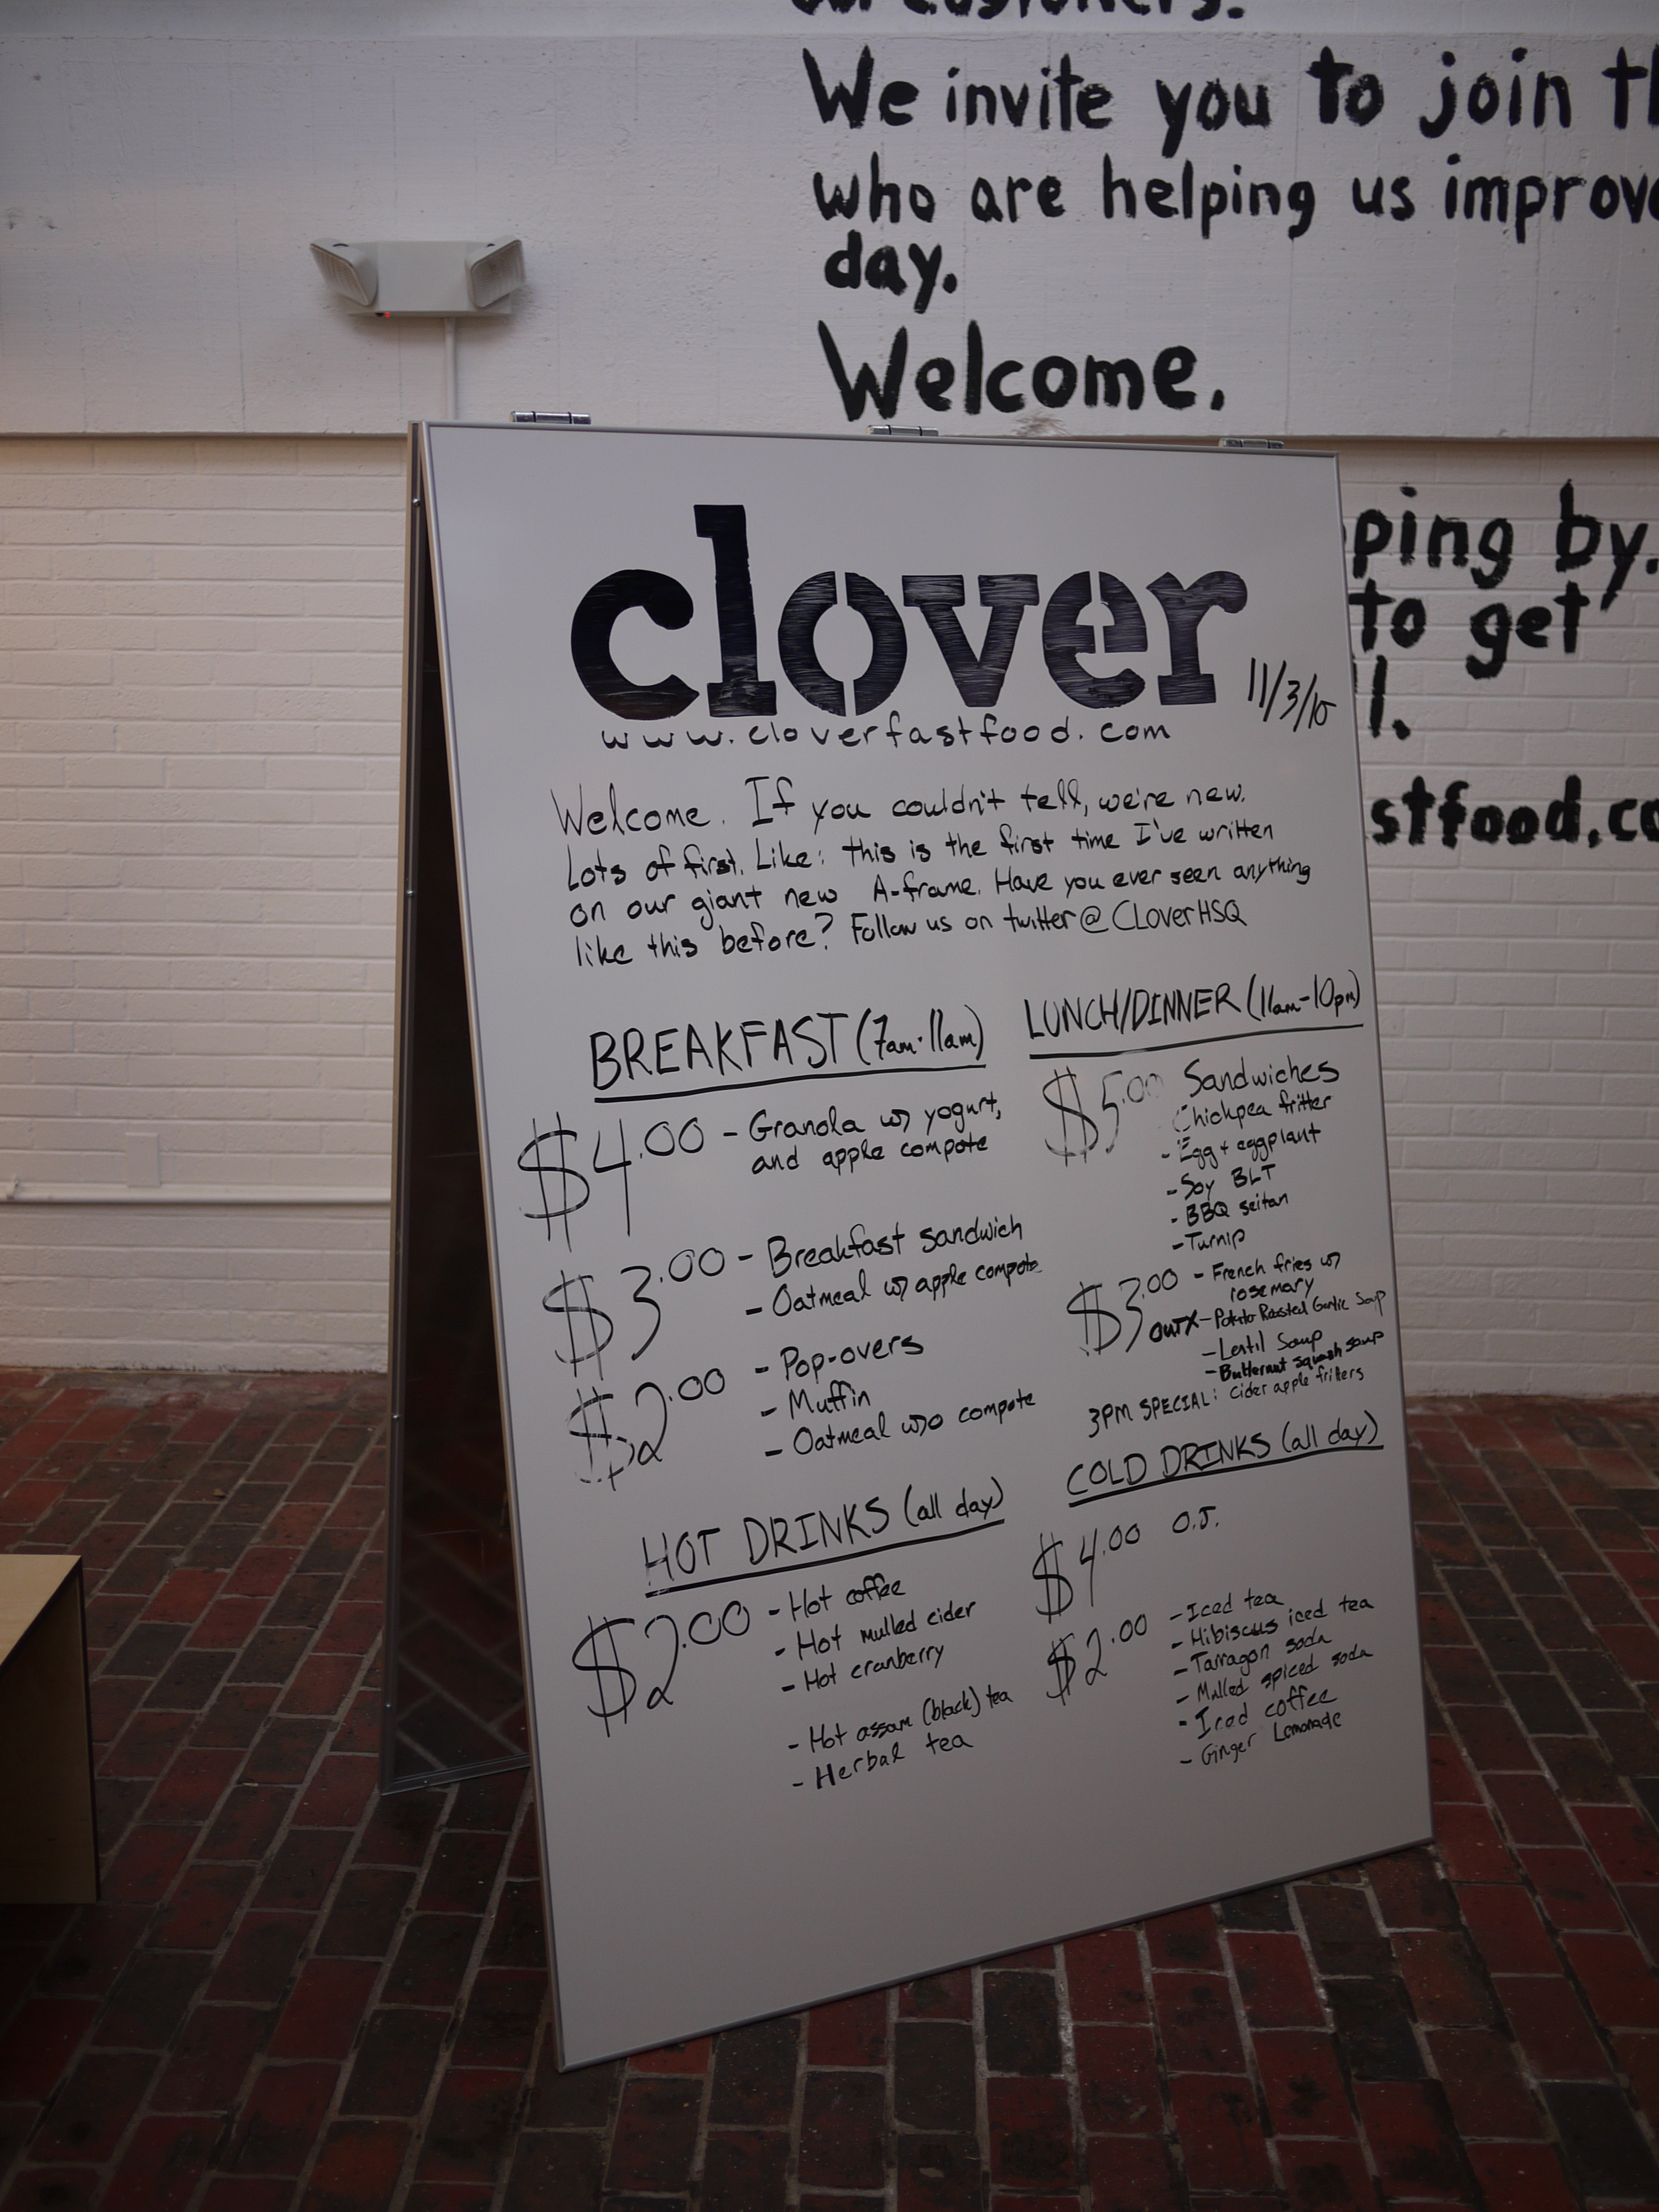 our customers.
We invite you to join th
who are helping us improve
day.
Welcome.
ping by.
to get
l.
stfood.co
clover
11/3/10
www.cloverfastfood.com
Welcome. If you couldn't tell, we're new.
Lots of first. Like: this is the first time I've written
on our giant new A-frame. Have you ever seen anything
like this before? Follow us on twitter @CLoverHSQ
BREAKFAST (7am-11am)
$4.00 - Granola w/ yogurt,
and apple compote
$3.00 - Breakfast sandwich
- Oatmeal w/ apple compote
$2.00 - Pop-overs
- Muffin
- Oatmeal w/o compote
HOT DRINKS (all day)
$2.00 - Hot coffee
- Hot mulled cider
- Hot cranberry
- Hot assam (black) tea
- Herbal tea
LUNCH/DINNER (11am-10pm)
$5.00 Sandwiches
Chickpea fritter
- Egg + eggplant
- Soy BLT
- BBQ seitan
- Turnip
$3.00 - French fries w/
rosemary
OUT X - Potato Roasted Garlic Soup
- Lentil Soup
- Butternut squash soup
3PM SPECIAL: Cider apple fritters
COLD DRINKS (all day)
$4.00 O.J.
$2.00 - Iced tea
- Hibiscus iced tea
- Tarragon soda
- Mulled spiced soda
- Iced coffee
- Ginger Lemonade